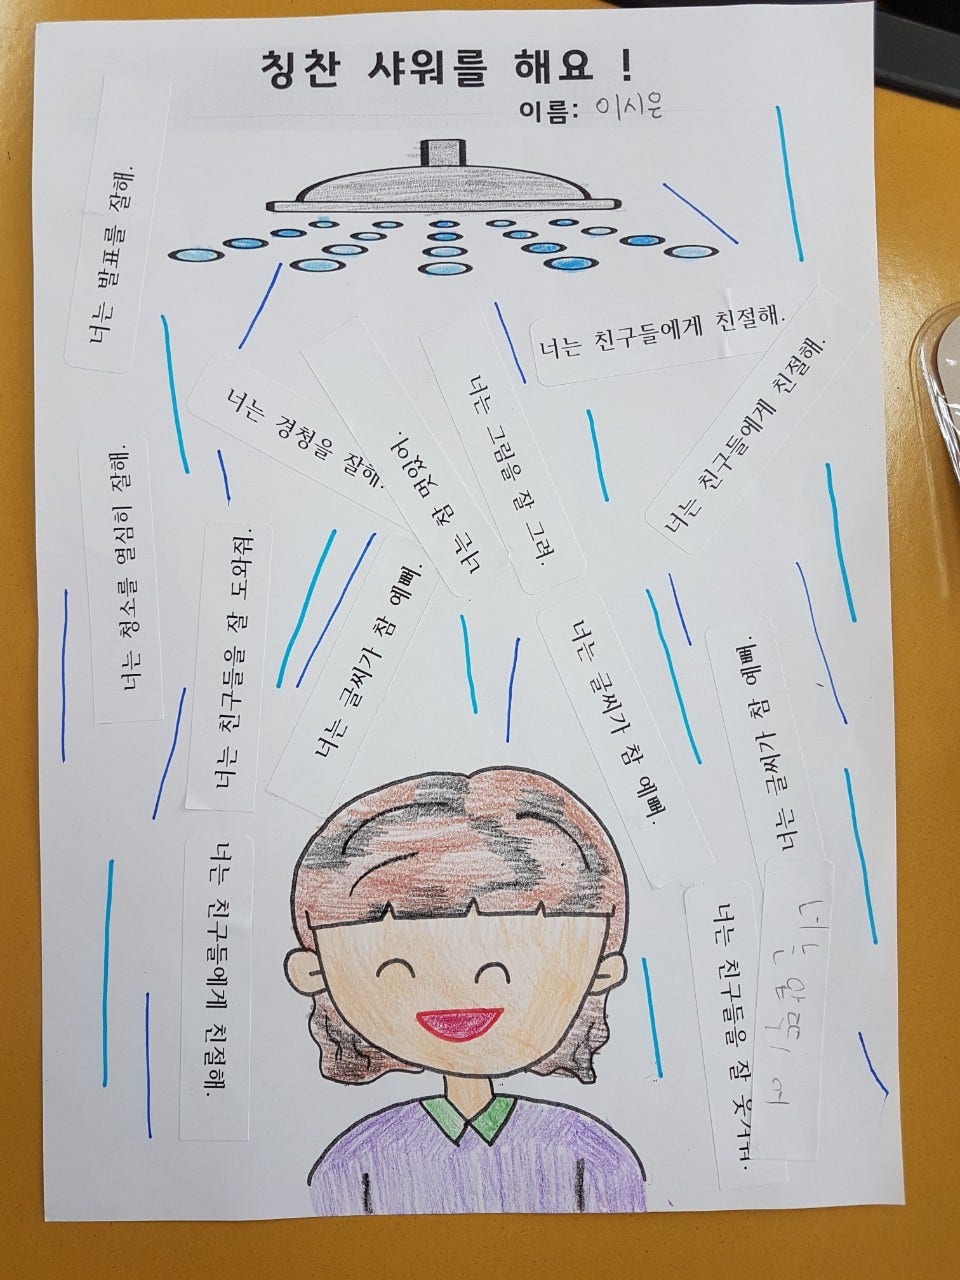 칭찬 샤워를 해요 !
이름: 이시은
너는 발표를 잘해.
너는 친구들에게 친절해.
너는 친구들에게 친절해.
너는 경청을 잘해.
너는 참 멋있어.
너는 그림을 잘 그려.
너는 청소를 열심히 잘해.
너는 친구들을 잘 도와줘.
너는 글씨가 참 예뻐.
너는 글씨가 참 예뻐.
너는 글씨가 참 예뻐.
너는 친구들에게 친절해.
너는 친구들을 잘 웃겨줘.